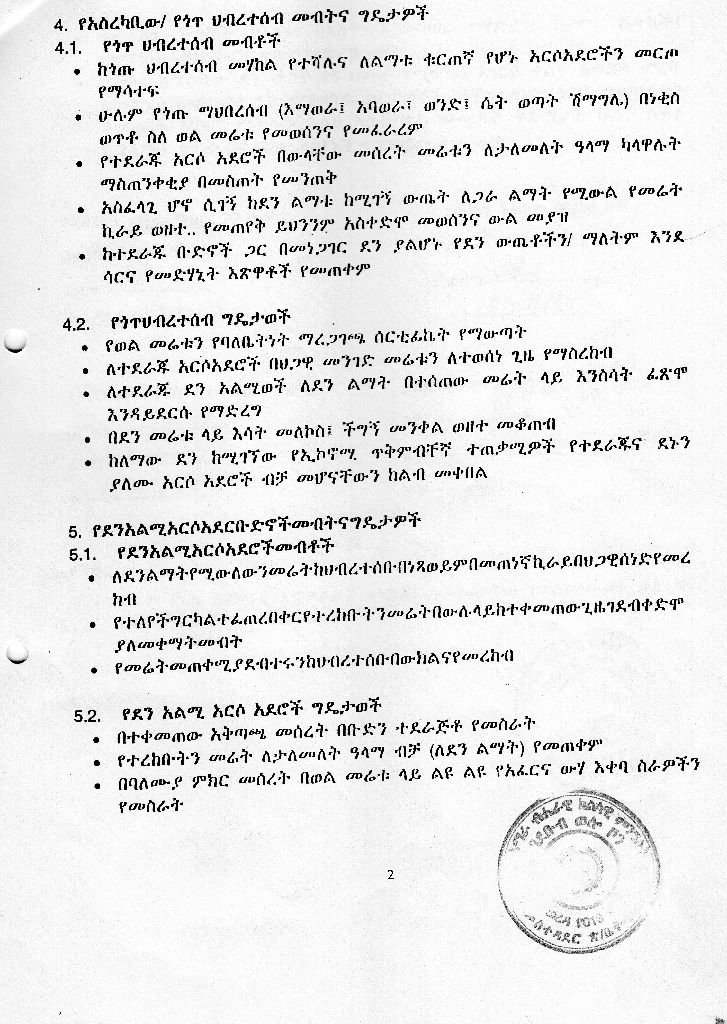 4. የአስረካቢው/ የጎጥ ህብረተሰብ መብትና ግዴታዎች
4.1. የጎጥ ህብረተሰብ መብቶች
• ከጎጡ ህብረተሰብ መሃከል የተሻሉና ለልማቱ ቁርጠኛ የሆኑ አርሶአደሮችን መርጦ
የማሳተፍ
• ሁሉም የጎጡ ማህበረሰብ (እማወራ፤ አባወራ፤ ወንድ፤ ሴት ወጣት ሽማግሌ) በነቂስ
ወጥቶ ስለ ወል መሬቱ የመወሰንና የመፈራረም
• የተደራጁ አርሶ አደሮች በውላቸው መሰረት መሬቱን ለታለመለት ዓላማ ካላዋሉት
ማስጠንቀቂያ በመስጠት የመንጠቅ
• አስፈላጊ ሆኖ ሲገኝ ከደን ልማቱ ከሚገኝ ውጤት ለጋራ ልማት የሚውል የመሬት
ኪራይ ወዘተ.. የመጠየቅ ይህንንም አስቀድሞ መወሰንና ውል መያዝ
• ከተደራጁ ቡድኖች ጋር በመነጋገር ደን ያልሆኑ የደን ውጤቶችን/ ማለትም እንደ
ሳርና የመድሃኒት እጽዋቶች የመጠቀም
4.2. የጎጥህብረተሰብ ግዴታወች
• የወል መሬቱን የባለቤትነት ማረጋገጫ ሰርቲፊኬት የማውጣት
• ለተደራጁ አርሶአደሮች በህጋዊ መንገድ መሬቱን ለተወሰነ ጊዜ የማስረከብ
• ለተደራጁ ደን አልሚወች ለደን ልማት በተሰጠው መሬት ላይ እንስሳት ፈጽሞ
እንዳይደርሱ የማድረግ
• በደን መሬቱ ላይ እሳት መለኮስ፤ ችግኝ መንቀል ወዘተ መቆጠብ
• ከለማው ደን ከሚገኘው የኢኮኖሚ ጥቅምብቸኛ ተጠቃሚዎች የተደራጁና ደኑን
ያለሙ አርሶ አደሮች ብቻ መሆናቸውን ከልብ መቀበል
5. የደንአልሚአርሶአደርቡድኖችመብትናግዴታዎች
5.1. የደንአልሚአርሶአደሮችመብቶች
• ለደንልማትየሚውለውንመሬትከህብረተሰቡበነጻወይምበመጠነኛኪራይበህጋዊሰነድየመረ
ከብ
• የተለየችግርካልተፈጠረበቀርየተረከቡትንመሬትበውሉላይከተቀመጠውጊዜገደብቀድሞ
ያለመቀማትመብት
• የመሬትመጠቀሚያደብተሩንከህብረተሰቡበውክልናየመረከብ
5.2. የደን አልሚ አርሶ አደሮች ግዴታወች
• በተቀመጠው አቅጣጫ መሰረት በቡድን ተደራጅቶ የመስራት
• የተረከቡትን መሬት ለታለመለት ዓላማ ብቻ (ለደን ልማት) የመጠቀም
• በባለሙያ ምክር መሰረት በወል መሬቱ ላይ ልዩ ልዩ የአፈርና ውሃ እቀባ ስራዎችን
የመስራት
2
ብሔራዊ ክልላዊ
ደቡብ ወሎ ዞን